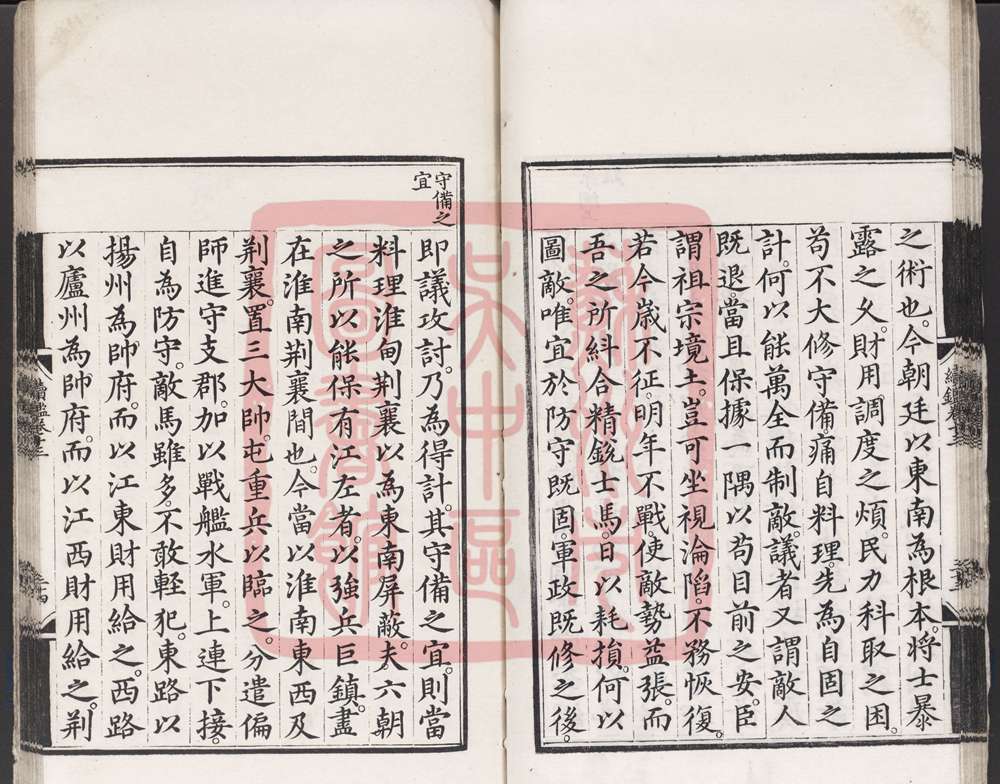 之術也。今朝廷以東南為根本。將士暴
露之久。財用調度之煩。民力科取之困。
苟不大修守備痛自料理。先為自固之
計。何以能萬全而制敵。議者又謂敵人
既退。當且保據一隅以苟目前之安。臣
謂祖宗境土。豈可坐視淪陷。不務恢復。
若今歲不征。明年不戰。使敵勢益張。而
吾之所糾合精銳士馬。日以耗損。何以
圖敵。唯宜於防守既固。軍政既修之後。
守備之
宜
即議攻討。乃為得計。其守備之宜。則當
料理淮甸荊襄以為東南屏蔽。夫六朝
之所以能保有江左者。以強兵巨鎮。盡
在淮南荊襄間也。今當以淮南東西及
荊襄。置三大帥。屯重兵以臨之。分遣偏
師進守支郡。加以戰艦水軍。上連下接。
自為防守。敵馬雖多。不敢輕犯。東路以
揚州為帥府。而以江東財用給之。西路
以廬州為帥府。而以江西財用給之。荊